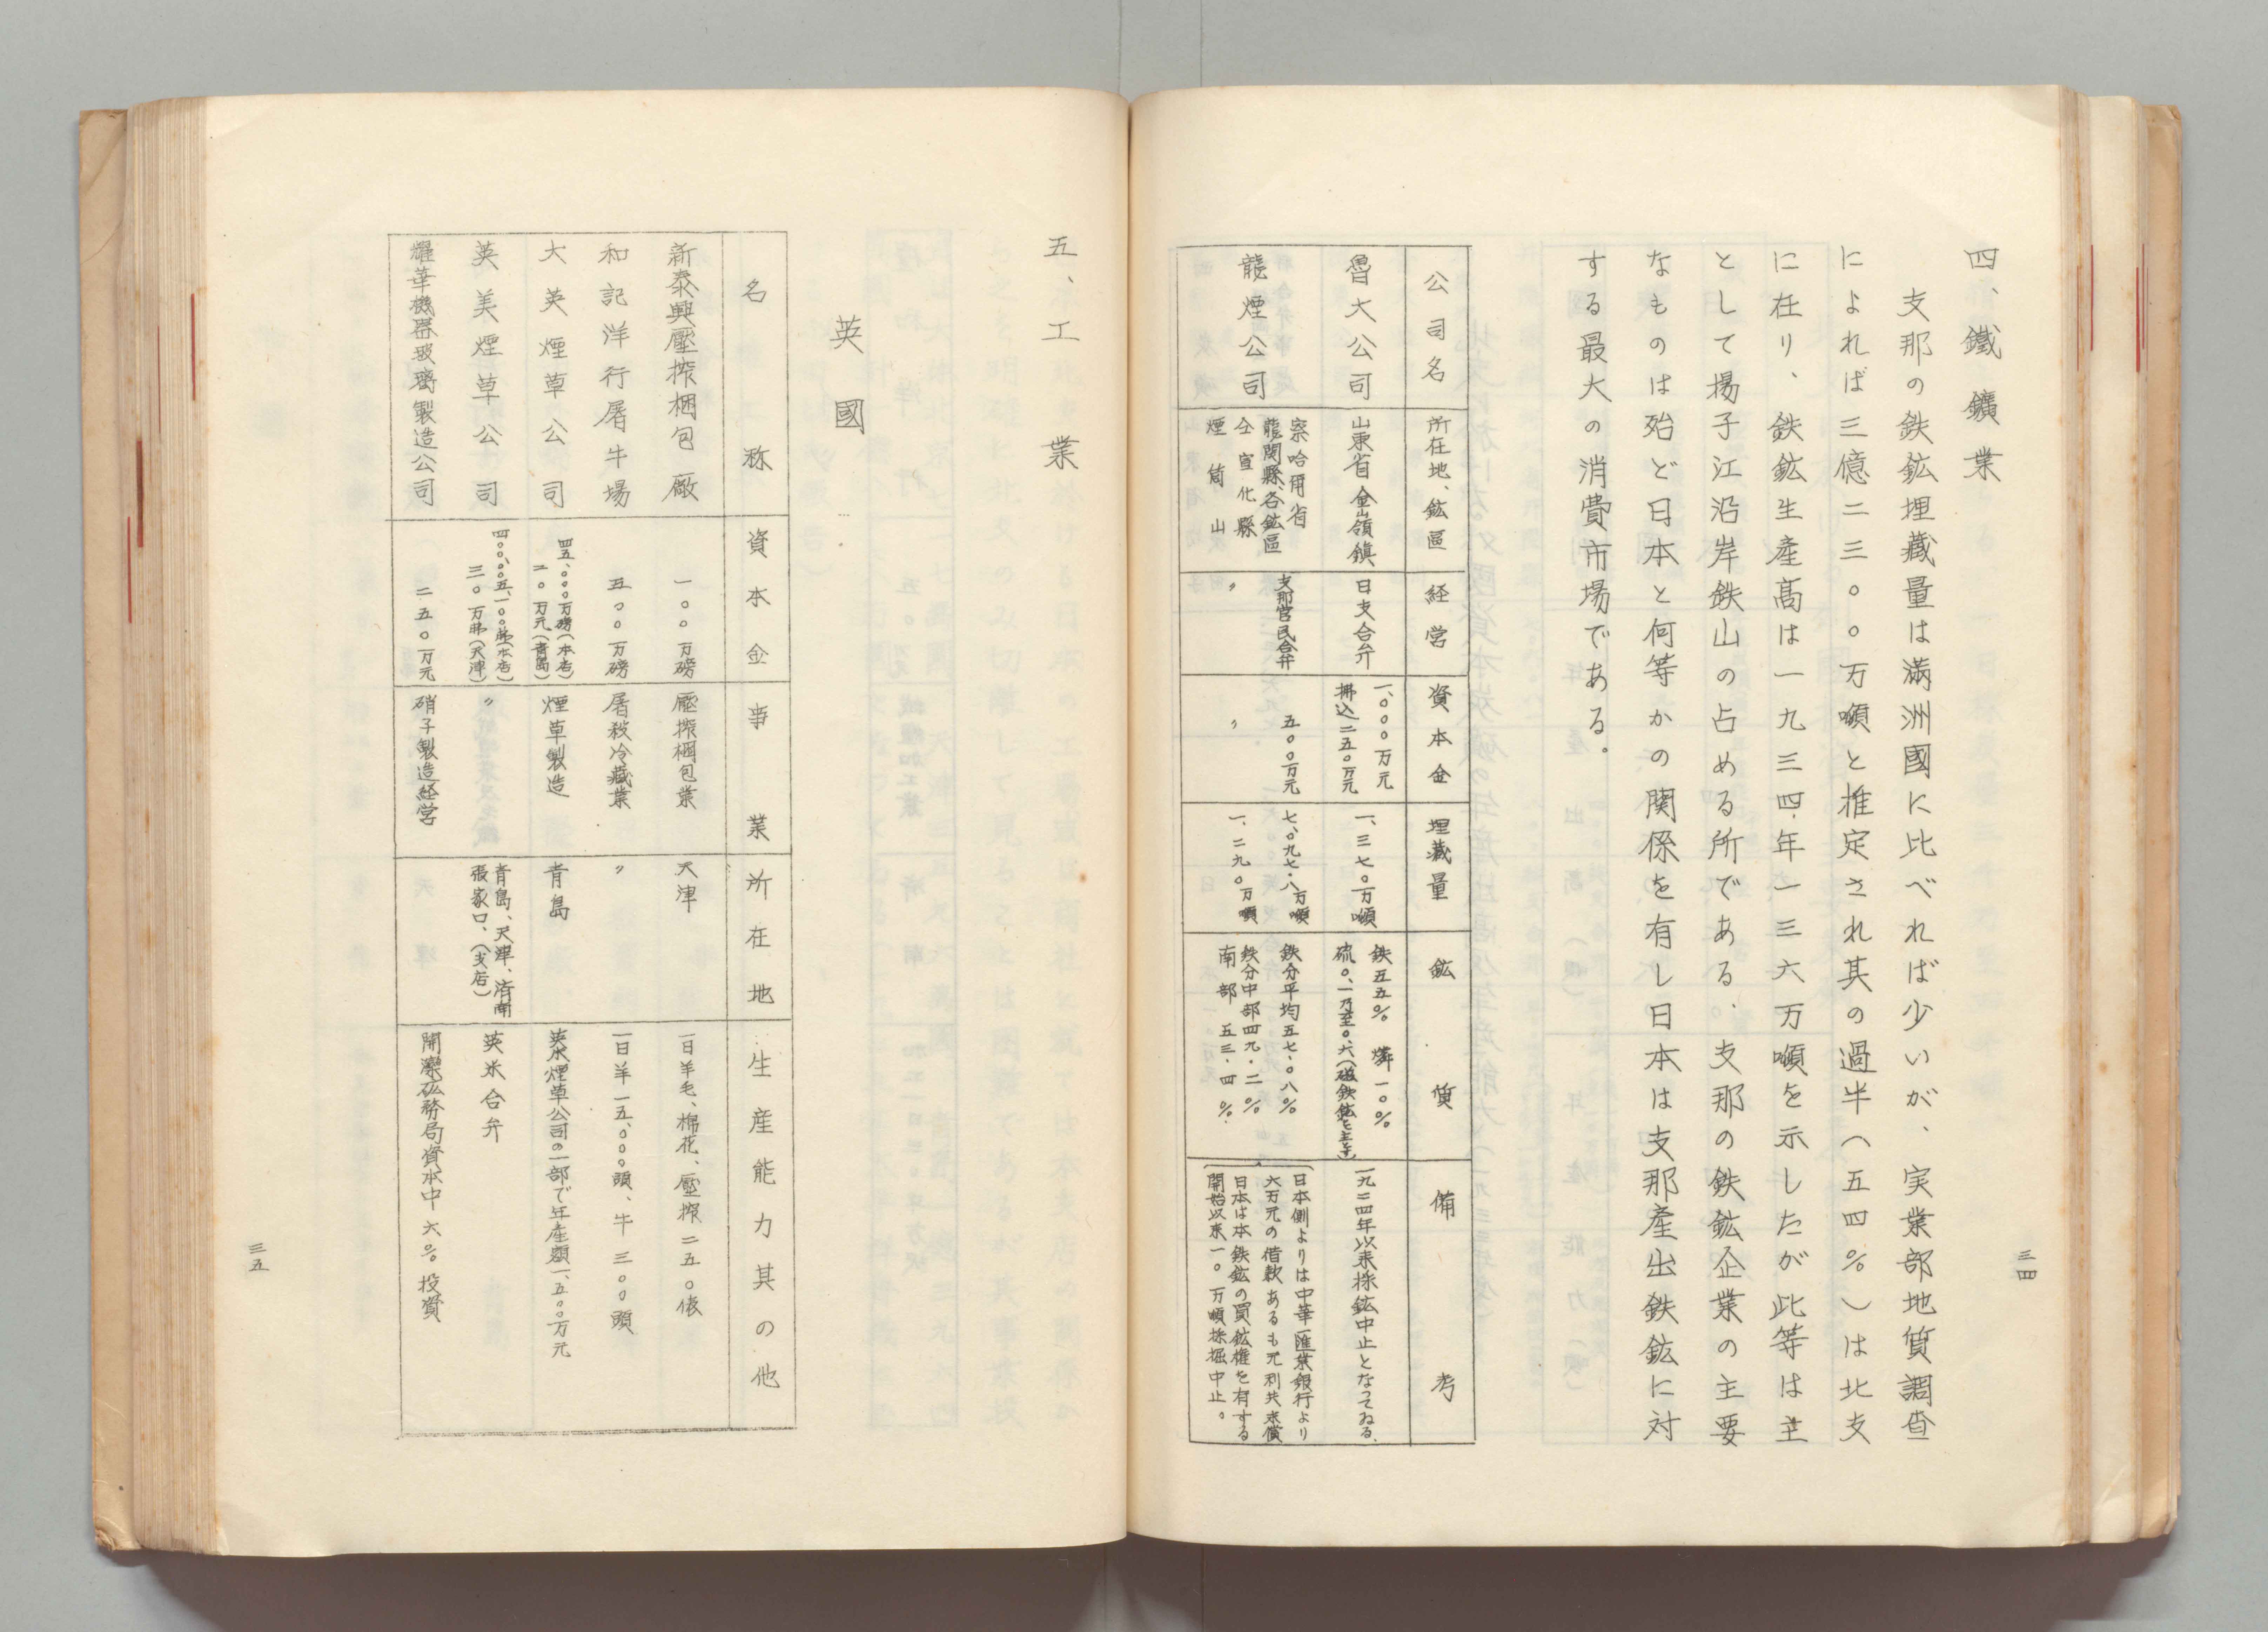 四、鐵鑛業
支那の鉄鉱埋蔵量は滿洲國に比べれば少いが、実業部地質調査
によれば三億二三〇〇万噸と推定され其の過半（五四％）は北支
に在り、鉄鉱生產高は一九三四年一三六万噸を示したが此等は主
として揚子江沿岸鉄山の占める所である、支那の鉄鉱企業の主要
なものは殆ど日本と何等かの関係を有し日本は支那產出鉄鉱に対
する最大の消費市場である。
公司名
所在地、鉱區
経営
資本金
埋蔵量
鉱質
備考
魯大公司
山東省金嶺鎮
日支合弁
一、〇〇〇万元
払込二五〇万元
一、三七〇万噸
鉄五五％ 燐一〇％
硫〇、一乃至〇、六（磁鉄鉱を主とす）
一九二四年以来採鉱中止となつてゐる、
龍煙公司
察哈爾省
龍関縣、各鉱區
仝宣化縣
煙筒山
支那官民合弁
〃
五〇〇万元
〃
七、〇九七・八万噸
一、二九〇万噸
鉄分平均五七・〇八％
鉄分中部四九・二％
南部 五三・四％
日本側よりは中華匯業銀行より
六万元の借款あるも元利共未償
日本は本鉄鉱の買鉱権を有する
開始以来一〇万噸採掘中止。
三四
五、工業
英國
名称
資本金
事業
所在地
生産能力其の他
新泰興壓搾梱包廠
一〇〇万磅
壓搾梱包業
天津
一日羊毛、棉花、壓搾二五〇俵
和記洋行屠牛場
五〇〇万磅
屠殺冷蔵業
〃
一日羊一五、〇〇〇頭、牛三〇〇頭
大英煙草公司
四五、〇〇〇万磅（本店）
二〇万元（青島）
煙草製造
青島
英米煙草公司の一部で年産額一、五〇〇万元
英美煙草公司
三〇万弗（天津）
〃
青島、天津、済南
張家口、（支店）
英米合弁
耀華機器玻璃製造公司
二五〇万元
硝子製造経営
開灤砿務局資本中六％投資
三五